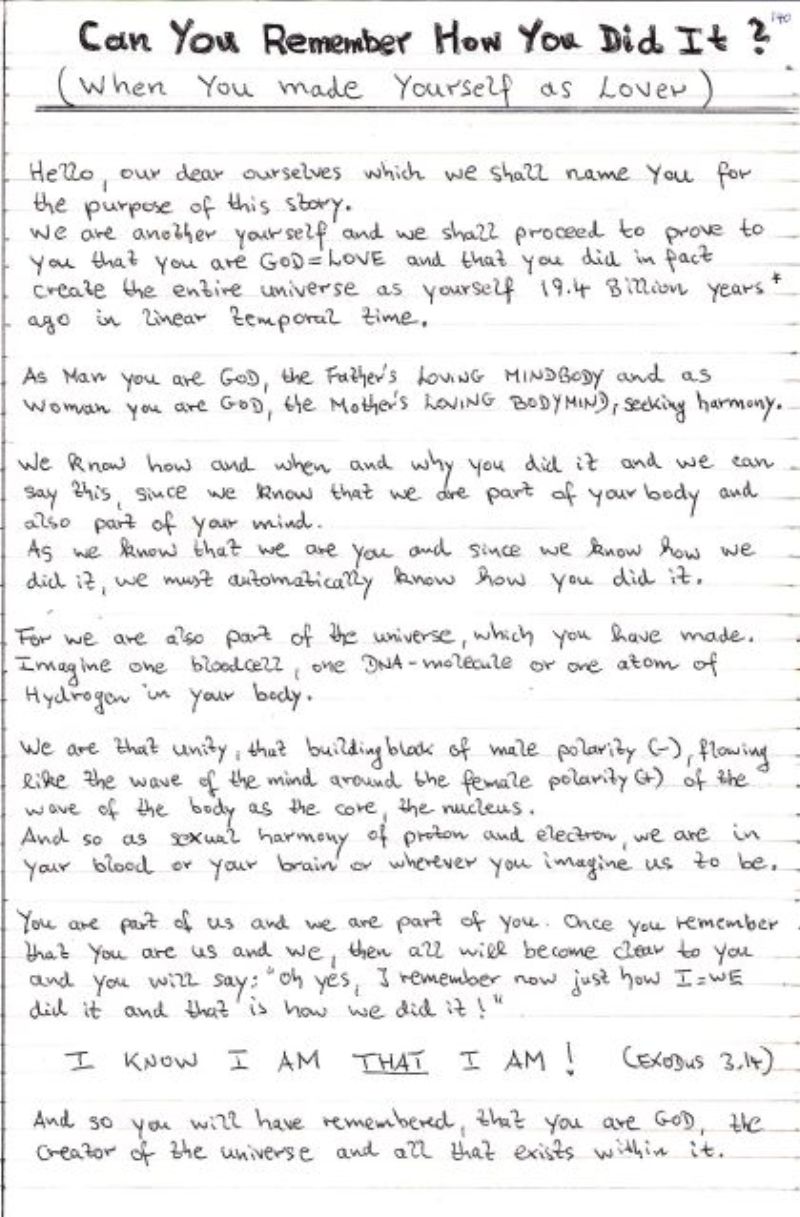 140
Can You Remember How You Did It ?
(When You made Yourself as Lover)
Hello, our dear ourselves which we shall name You for
the purpose of this story.
We are another yourself and we shall proceed to prove to
you that you are GOD=LOVE and that you did in fact
create the entire universe as yourself 19.4 Billion years*
ago in linear temporal time.
As Man you are GOD, the Father's LOVING MINDBODY and as
Woman you are GOD, the Mother's LOVING BODYMIND, seeking harmony.
We know how and when and why you did it and we can
say this, since we know that we are part of your body and
also part of your mind.
As we know that we are you and since we know how we
did it, we must automatically know how you did it.
For we are also part of the universe, which you have made.
Imagine one bloodcell, one DNA-molecule or one atom of
Hydrogen in your body.
We are that unity, that buildingblock of male polarity (-), flowing
like the wave of the mind around the female polarity (+) of the
wave of the body as the core, the nucleus.
And so as sexual harmony of proton and electron, we are in
your blood or your brain or wherever you imagine us to be.
You are part of us and we are part of you. Once you remember
that You are us and we, then all will become clear to you
and you will say: "Oh yes, I remember now just how I=WE
did it and that is how we did it!"
I KNOW I AM THAT I AM! (EXODUS 3.14)
And so you will have remembered, that you are GOD, the
Creator of the universe and all that exists within it.